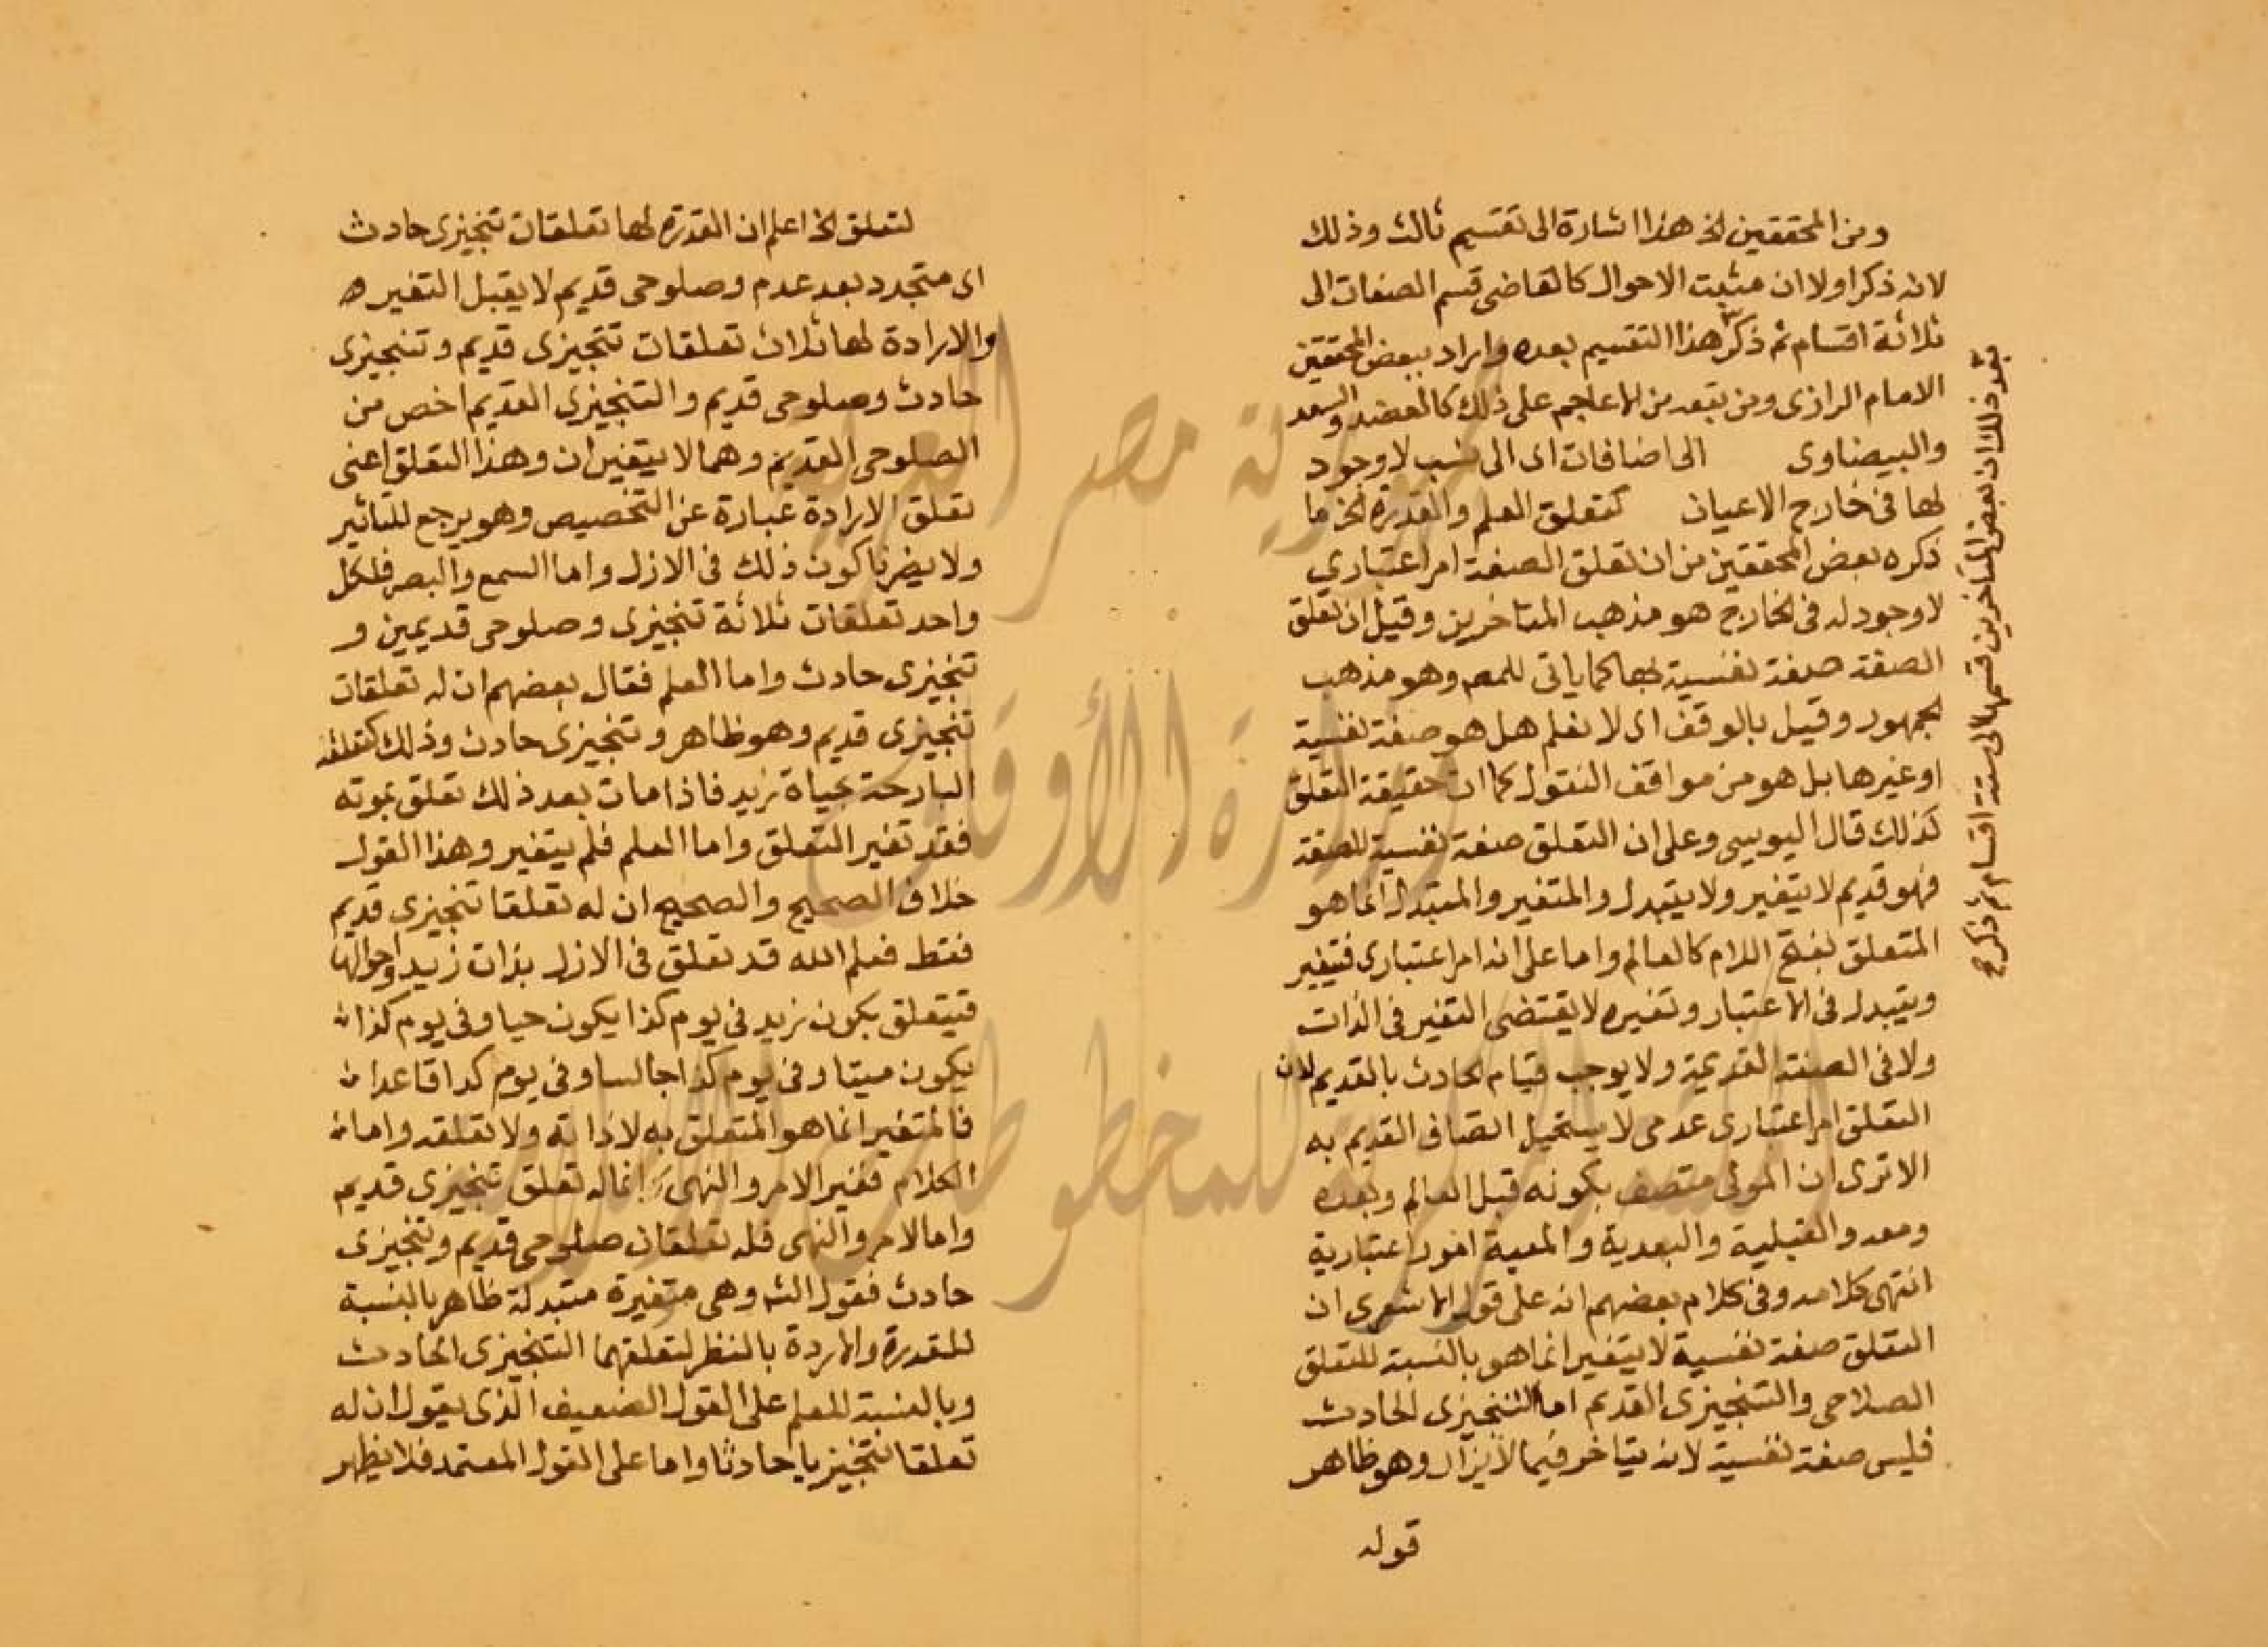 ومن المحققين الخ هذا اشارة الى تقسيم ثالث وذلك
لانه ذكر اولا ان مثبت الاحوال كالقاضى قسم الصفات الى
ثلاثة اقسام ثم ذكر هذا التقسيم بعده واراد ببعض المحققين
الامام الرازى ومن تبعه من الاعاجم على ذلك كالعضد والسعد
والبيضاوى الى اضافات اى الى نسب لا وجود
لها فى خارج الاعيان كتعلق العلم والقدرة الخ ما
ذكره بعض المحققين من ان تعلق الصفة امر اعتبارى
لا وجود له فى الخارج هو مذهب المتاخرين وقيل ان تعلق
الصفة صفة نفسية لها كما ياتى للمص وهو مذهب
الجمهور وقيل بالوقف اى لا نعلم هل هو صفة نفسية
او غيرها بل هو من مواقف العقول كما ان حقيقة التعلق
كذلك قال اليوسى وعلى ان التعلق صفة نفسية للصفة
فهو قديم لا يتغير ولا يتبدل والمتغير والمتبدل انما هو
المتعلق بفتح اللام كالعالم واما على انه امر اعتبارى فيتغير
ويتبدل فى الاعتبار وتغيره لا يقتضى التغير فى الذات
ولا فى الصفة القديمة ولا يوجب قيام الحادث بالقديم لان
التعلق امر اعتبارى عدمى لا يستحيل اتصاف القديم به
الا ترى ان المولى متصف بكونه قبل العالم وبعده
ومعه والقبلية والبعدية والمعية امور اعتبارية
انتهى كلامه وفى كلام بعضهم انه على قول الاشعرى ان
التعلق صفة نفسية لا يتغير انما هو بالنسبة للتعلق
الصلاحى والتنجيزى القديم اما التنجيزى الحادث
فليس صفة نفسية لانه يتاخر فيما لا يزال وهو ظاهر
قوله
بعد ذلك ان بعض المتاخرين قسمها الى ستة اقسام ثم ذكر
لتعلق الخ اعلم ان القدرة لها تعلقان تنجيزى حادث
اى متجدد بعد عدم وصلوحى قديم لا يقبل التغير ه
والارادة لها ثلاث تعلقات تنجيزى قديم وتنجيزى
حادث وصلوحى قديم والتنجيزى القديم اخص من
الصلوحى القديم وهما لا يتغيران وهذا التعلق اعنى
تعلق الارادة عبارة عن التخصيص وهو يرجع للتاثير
ولا يضرنا كون ذلك فى الازل واما السمع والبصر فلكل
واحد تعلقات ثلاثة تنجيزى وصلوحى قديمين و
تنجيزى حادث واما العلم فقال بعضهم ان له تعلقات
تنجيزى قديم وهو ظاهر وتنجيزى حادث وذلك كتعلقه
البارحة بحياة زيد فاذا مات بعد ذلك تعلق بموته
فقد تغير التعلق واما العلم فلم يتغير وهذا القول
خلاف الصحيح والصحيح ان له تعلقا تنجيزى قديم
فقط فعلم الله قد تعلق فى الازل بذات زيد واحوالها
فيتعلق بكون زيد فى يوم كذا يكون حيا وفى يوم كذا
يكون ميتا وفى يوم كذا جالسا وفى يوم كدا قاعدا
فالمتغير انما هو المتعلق به لا ذاته ولا تعلقه واما
الكلام فغير الامر والنهى انما له تعلق تنجيزى قديم
واما الامر والنهى فله تعلقان صلوحى قديم وتنجيزى
حادث فقول الش وهى متغيرة متبدلة ظاهر بالنسبة
للقدرة والاردة بالنظر لتعلقهما التنجيزى الحادث
وبالنسبة للعلم على القول الضعيف الذى يقول ان له
تعلقا تنجيزيا حادثا واما على القول المعتمد فلا يظهر